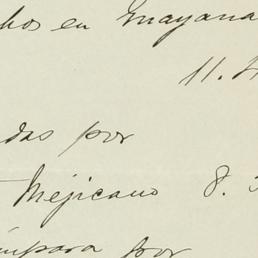 hos en Guayana
11.
das por
Mejicano 8.
ámpara por